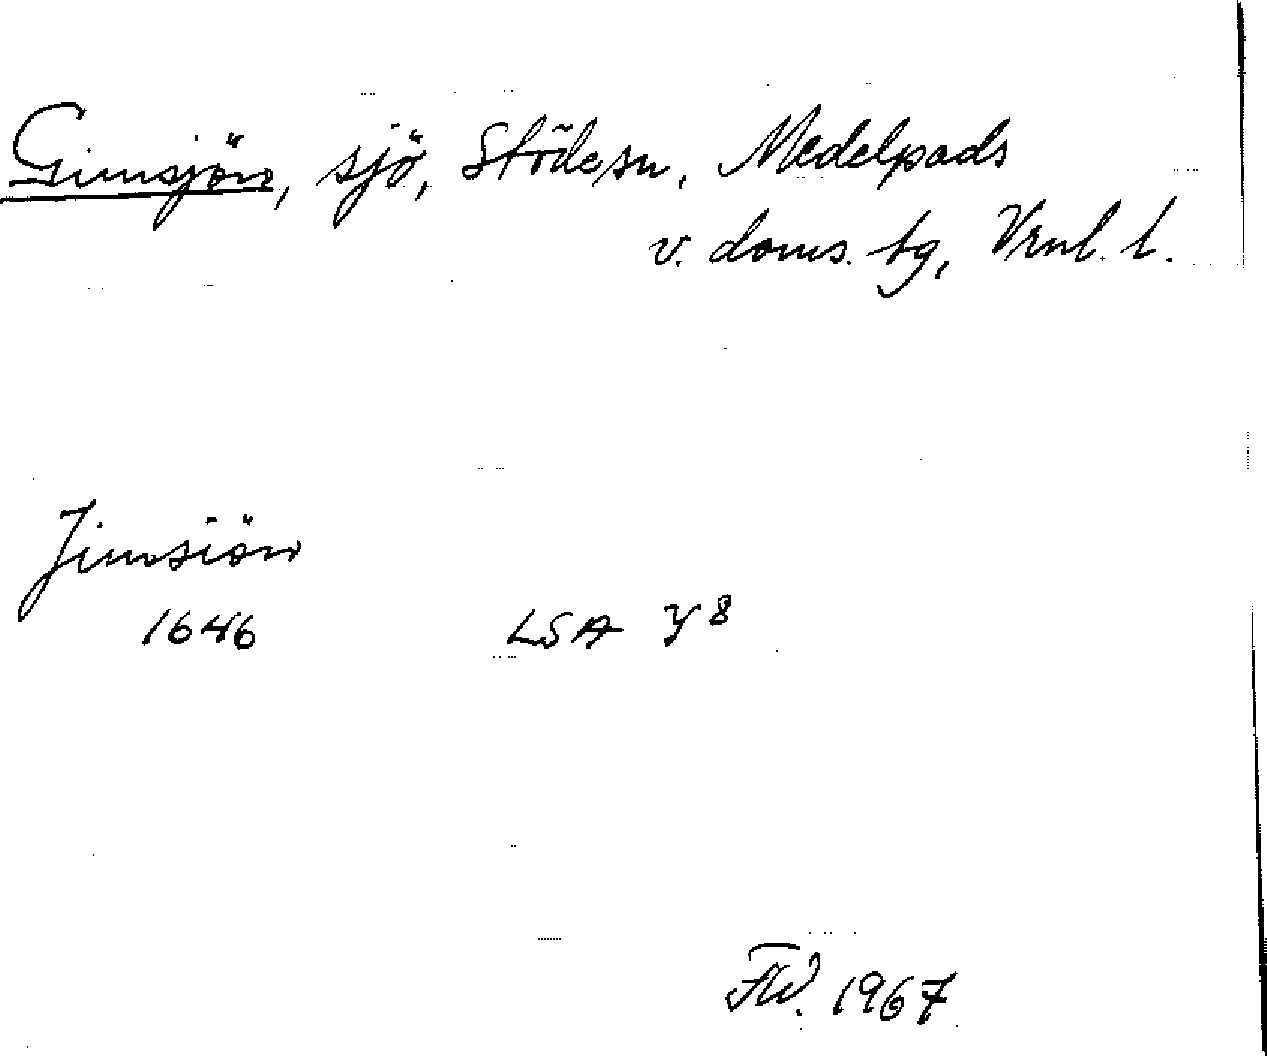 Gimsjön, sjö, Stöde sn, Medelpads
v. doms. tg, Vrnl. l.
Jimsiön
1646 LSA Y 8
1967